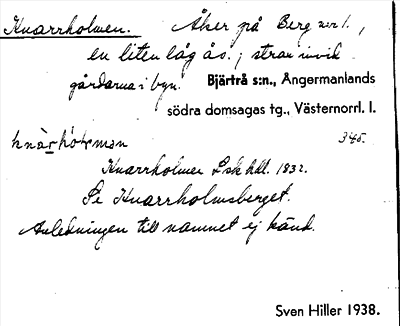 Knarrholmen. Åker på Berg nr 1.,
en liten låg ås.; strax invid
gårdarna i byn. Bjärtrå s:n., Ångermanlands
södra domsagas tg., Västernorrl. l.
345.
Knarrholmen Lsk hdl. 1832.
Se Knarrholmsberget.
Anledningen till namnet ej känd.
Sven Hiller 1938.